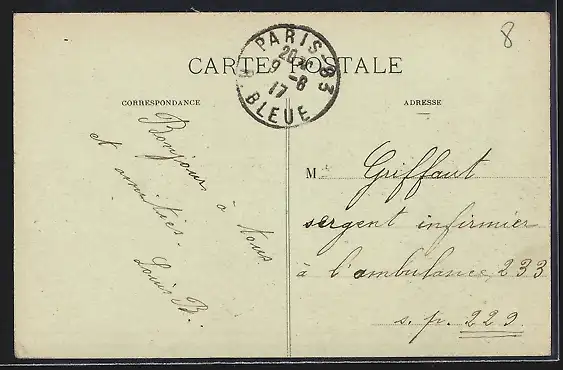 8
CARTE POSTALE
PARIS-83
20 30
9 -8
17
R. BLEUE
CORRESPONDANCE
Bonjour à tous
et amitiés.
Louis B.
ADRESSE
M. Griffaut
sergent infirmier
à l'ambulance 233
s. p. 229